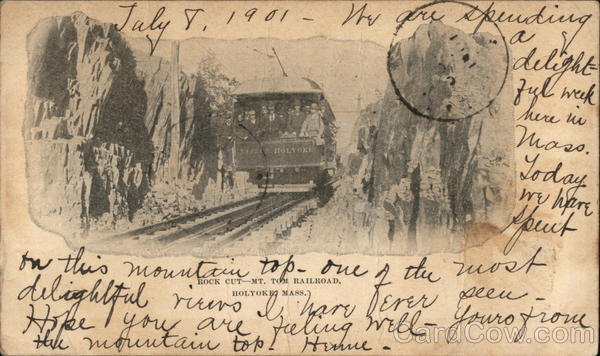 July 8, 1901 - We are spending
a
delight-
ful week
here in
Mass.
Today
we have
spent
HOLYOKE
on this mountain top - one of the most
ROCK CUT—MT. TOM RAILROAD,
delightful views I have ever seen -
HOLYOKE, MASS.
Hope you are feeling well - yours from
the mountain top.
CardCow.com